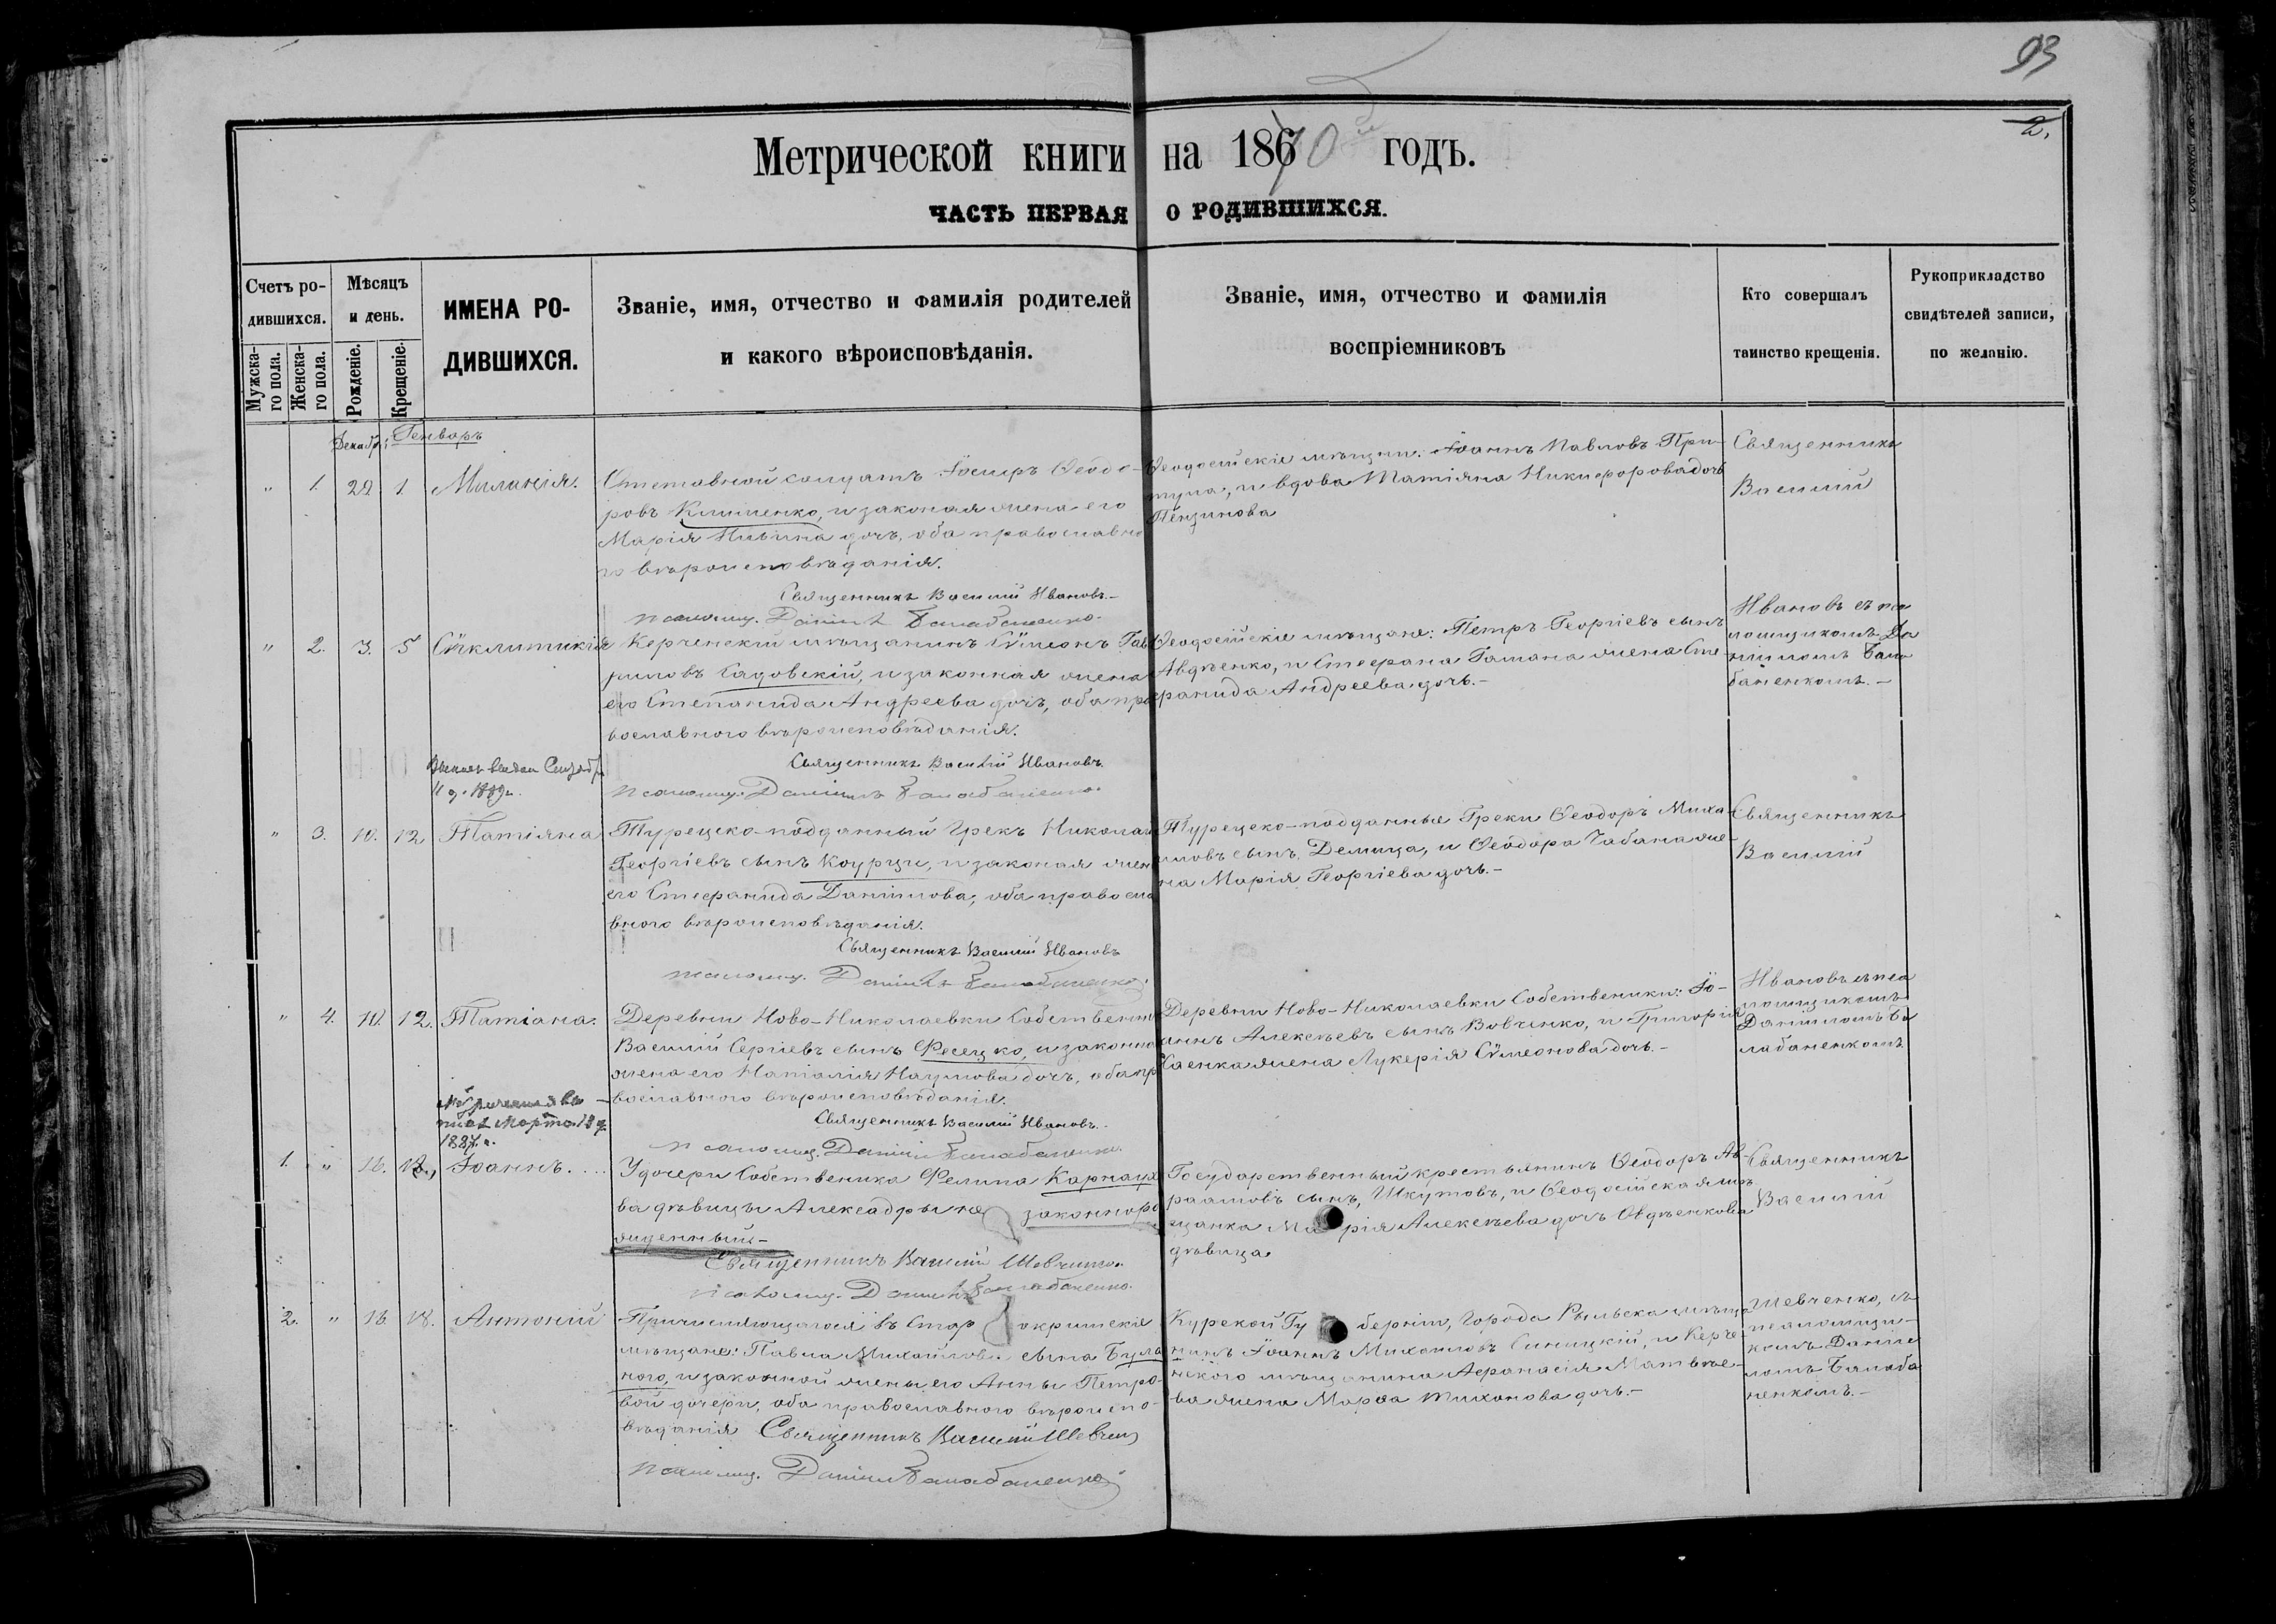 93
2.
Метрической книги на 1870й годъ.
ЧАСТЬ ПЕРВАЯ О РОДИВШИХСЯ.
Счетъ ро-
дившихся.
Мужска-
го пола.
Женска-
го пола.
Мѣсяцъ
и день.
Рожденіе.
Крещеніе.
ИМЕНА РО-
ДИВШИХСЯ.
Званіе, имя, отчество и фамилія родителей
и какого вѣроисповѣданія.
Званіе, имя, отчество и фамилія
воспріемниковъ
Кто совершалъ
таинство крещенія.
Рукоприкладство
свидѣтелей записи,
по желанію.
Декабр: Генварь
" 1. 22 1. Миланія.
Отставной солдатъ Іосифъ Ѳеодо-
ровъ Клименко, и законая жена его
Марія Ильина дочь, оба православно
го вѣроисповѣданія.
Священникъ Василій Ивановъ.-
псаломщ. Даніилъ Балабаненко.
Ѳеодосійскіе мѣщани: Іоаннъ Павловъ При-
тула, и вдова Татіяна Никифорова дочь
Пензинова
Священникъ
Василій
" 2. 3. 5 Сѵклитикія
Керченскій мѣщанинъ Сѵмеонъ Гав
риловъ Садовскій, и законная жена
его Степанида Андреева дочь, оба пра
вославного вѣроисповѣданія.
Священникъ Василій Ивановъ.
псаломщ. Даніилъ Балабаненко.
Ѳеодосійскіе мѣщане: Петръ Георгіевъ сынъ
Авдѣенко, и Стефана Гамана жена Сте-
фанида Андреева дочь.-
Ивановъ съ пса
ломщикомъ Да
ніиломъ Бала
баненкомъ.-
11 д. 1889 г.
" 3. 10. 12 Татіяна
Турецко-подданный Грекъ Николай
Георгіевъ сынъ Коурци, и законая жена
его Стефанида Даніилова, оба правосла
вного вѣроисповѣданія.
Священникъ Василій Ивановъ
псаломщ. Даніилъ Балабаненко.
Турецско-подданные Греки Ѳеодоръ Миха
иловъ сынъ, Демица, и Ѳеодора Чабана же-
на Марія Георгіева дочь.-
Священникъ
Василій
" 4. 10. 12. Татіана.
Деревни Ново-Николаевки Собственник
Василій Сергіевъ сынъ Фесецко, и законна
жена его Наталія Наумова дочь, оба пр
вославного вѣроисповѣданія.
Священникъ Василій Ивановъ.
псаломщ. Даніилъ Балабаненко.
Деревни Ново-Николаевки Собственики: Іо-
аннъ Алексѣевъ сынъ Вовченко, и Григорія
Саенка жена Лукерія Сѵмеонова дочь.-
Ивановъ съ пса
ломщикомъ
Даніиломъ Ба
лабаненкомъ.
Марта 18 д.
1887 г.
1. " 16. 18., Іоаннъ....
У дочери Собственика Филипа Карпаца
ва дѣвицы Алексадры не законноро
жденный-
Священникъ Василій Шевченко.
псаломщ. Даніилъ Балабаненко.
Государственный крестьянинъ Ѳеодоръ Ав-
раамовъ сынъ, Шкутовъ, и Ѳеодосійская мѣ
щанка Марія Алексѣева дочь Овдѣенкова
дѣвица
Священникъ
Василій
2. " 16. 18. Антоній
Причисляющагося въ Старокримскіе
мѣщане: Павла Михайлова сына Була
ного, и законной жены его Анны Петро-
вой дочери, оба православного вѣроиспо-
вѣданія Священникъ Василій Шевченко
псаломщ. Даніилъ Балабаненко
Курской Губерніи, города Рыльска мѣща
нинъ Іоаннъ Михаиловъ Синицкій, и Керче-
нского мѣщанина Афанасія Матвѣе-
ва жена Марѳа Тиханова дочь.-
Шевченко, съ
псаломщи-
комъ Даніи
ломъ Балаба
ненкомъ.-